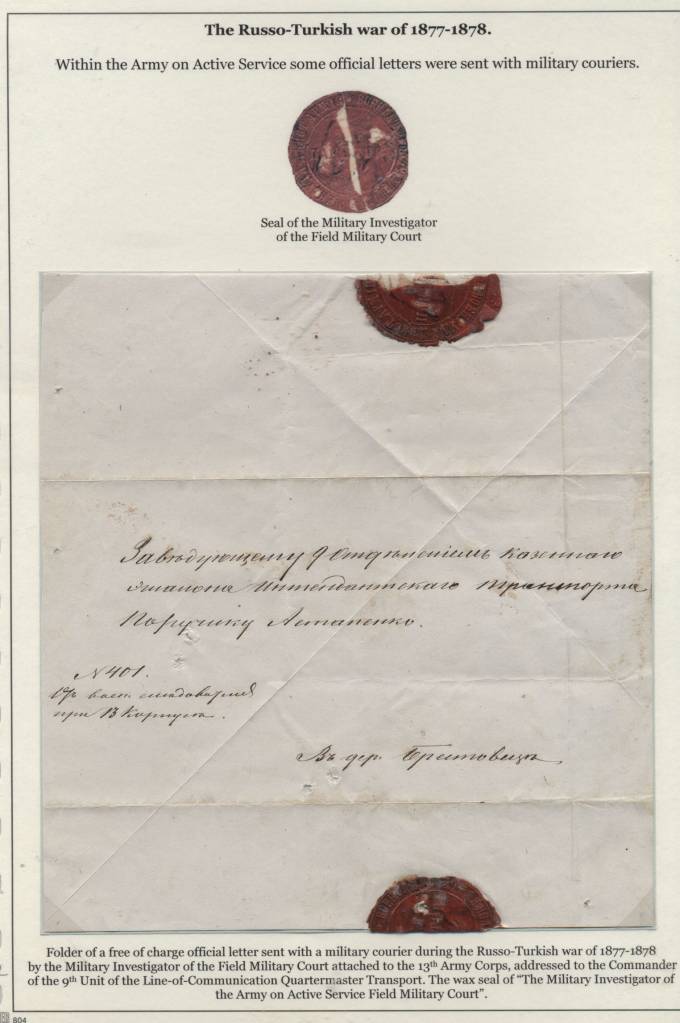 The Russo-Turkish war of 1877-1878.
Within the Army on Active Service some official letters were sent with military couriers.
Seal of the Military Investigator
of the Field Military Court
Завѣдующему 9 Отдѣленіемъ казеннаго
эшалона Интендантскаго транспорта
Поручику Астапенко.
N 401.
От воен. следователя
при 13 Корпусѣ.
Въ дер. Брестовецъ
Folder of a free of charge official letter sent with a military courier during the Russo-Turkish war of 1877-1878
by the Military Investigator of the Field Military Court attached to the 13th Army Corps, addressed to the Commander
of the 9th Unit of the Line-of-Communication Quartermaster Transport. The wax seal of “The Military Investigator of
the Army on Active Service Field Military Court”.
804